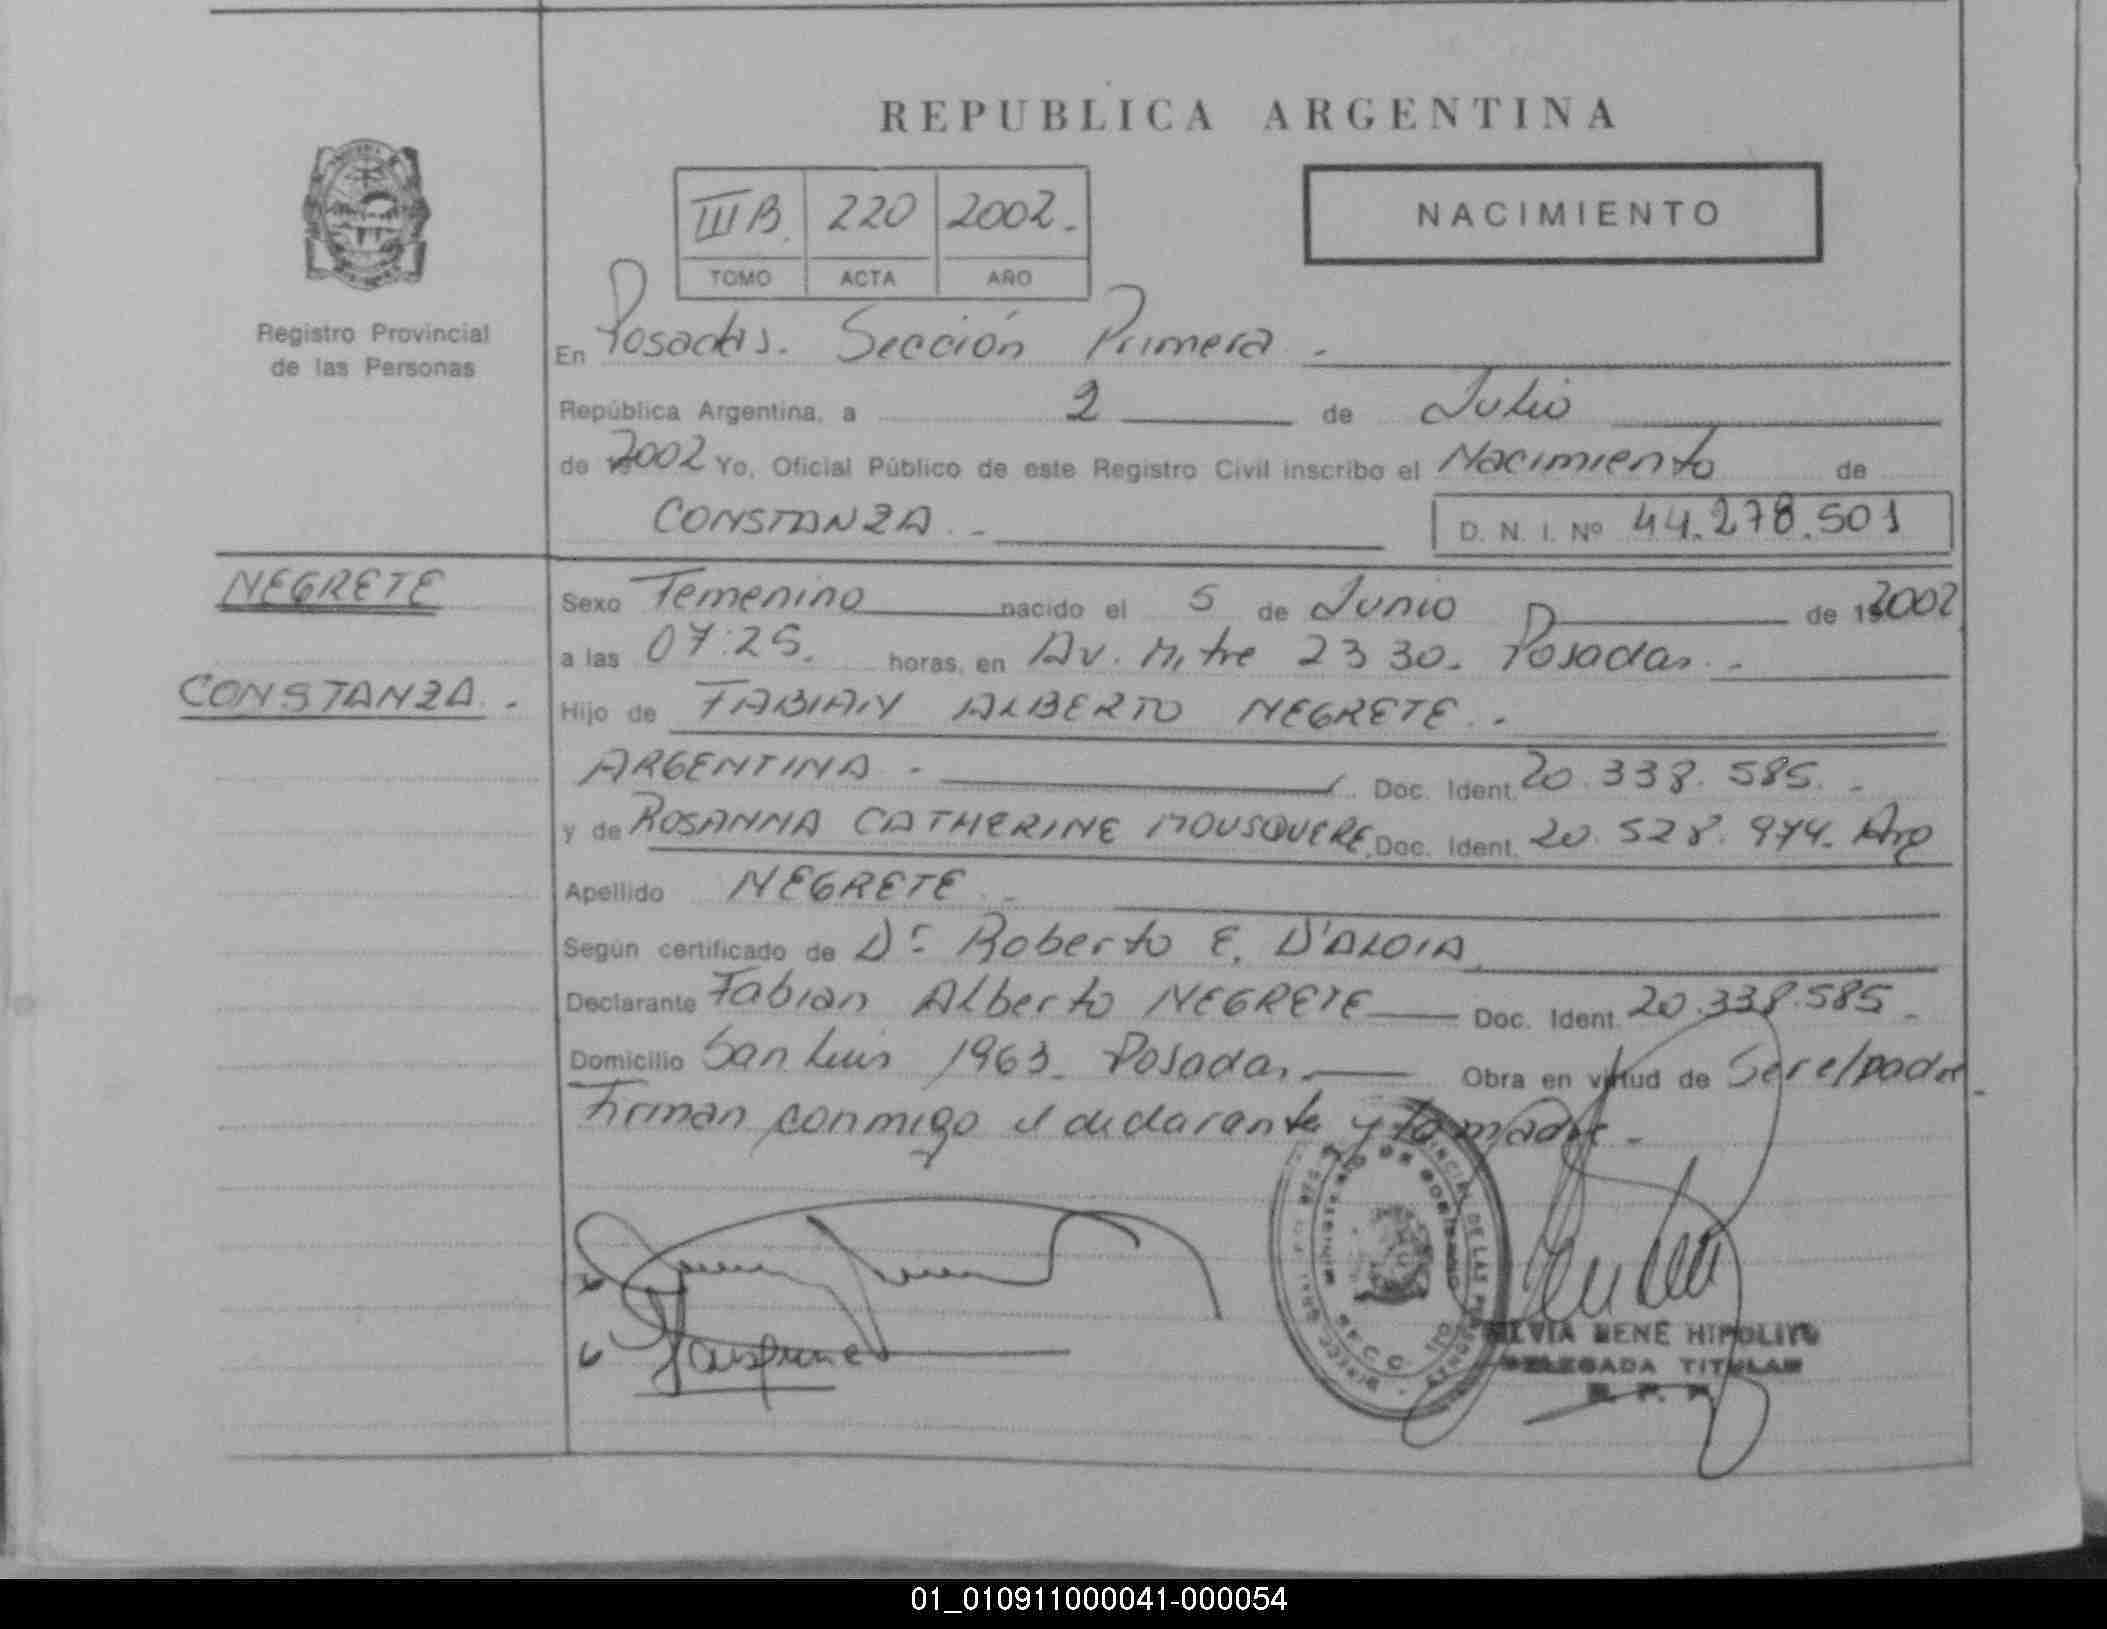 REPUBLICA ARGENTINA
NACIMIENTO
III B. 220 2002.
TOMO ACTA AÑO
Registro Provincial
de las Personas
En Posadas. Sección Primera.
República Argentina, a 2 de Julio
de 2002 Yo, Oficial Público de este Registro Civil inscribo el Nacimiento de
CONSTANZA.-
D. N. I. Nº 44.278.501
NEGRETE
CONSTANZA.-
Sexo Femenino nacido el 5 de Junio de 2002
a las 07:25. horas, en Av. Mitre 2330. Posadas.-
Hijo de FABIAN ALBERTO NEGRETE.-
ARGENTINA.- Doc. Ident. 20.338.585.-
y de ROSANNA CATHERINE MOUSQUERE. Doc. Ident. 20.528.974. Arg
Apellido NEGRETE.-
Según certificado de Dr. Roberto E. D'ALOIA
Declarante Fabian Alberto NEGRETE Doc. Ident. 20.338.585.-
Domicilio San Luis 1963. Posadas. Obra en virtud de Ser el padre.
Firman conmigo el declarante y la madre.-
HIPOLITO
DELEGADA TITULAR
01_010911000041-000054